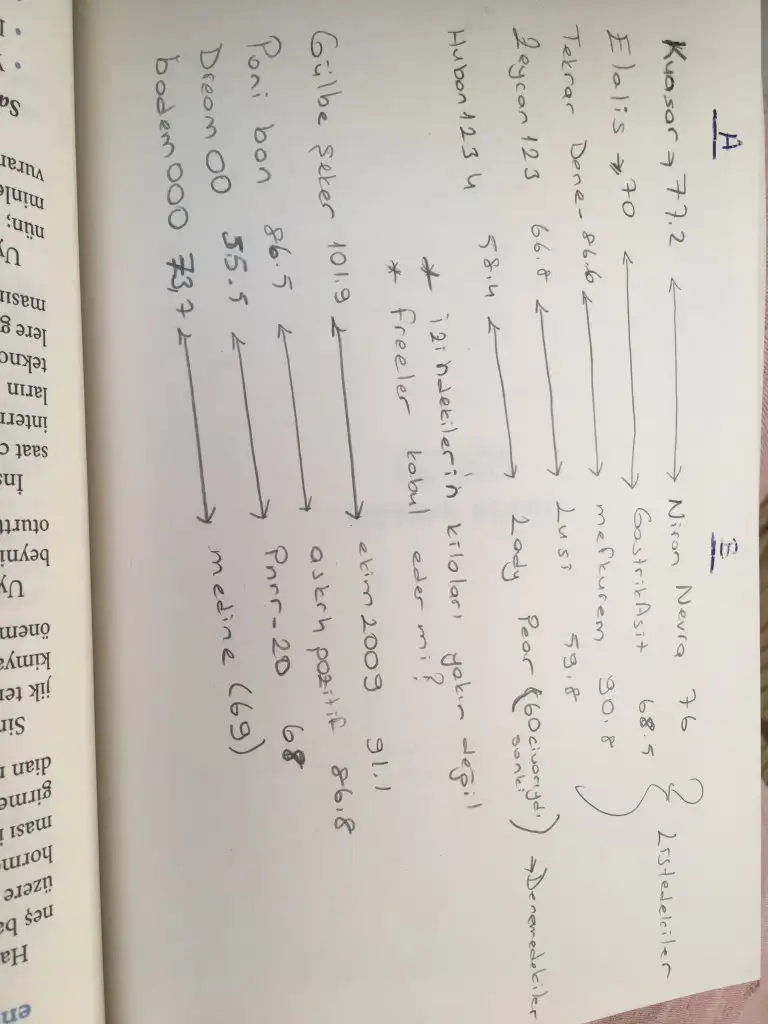 A B
Kuasar → 77.2 Niran Nevra 76
Elalis → 70 GastrikAsit 68.5
Listedekiler
Tekrar Dene - 86.6 mefkurem 90.8
Zeycan 123 66.8 Lusi 59.8
Huban 1234 58.4 Lady Pear (60 civarıydı sanki) → Denemedekiler
* izindekilerin kiloları yakın değil
* freeler kabul eder mi?
Gülbe şeker 101.9 ekim2009 91.1
Poni bon 86.5 askrh pozitif 86.8
Dream00 55.5 Pnrr-20 68
badem000 73,7 medine (69)
en
Ha
neş ba
üzere
horm
ması i
girme
dian r
Sir
jik ter
kimya
önem
Uy
beyni
oturtu
İns
saat ç
interr
ların
tekno
lere g
masın
Uy
nün;
minle
vurar
Sa